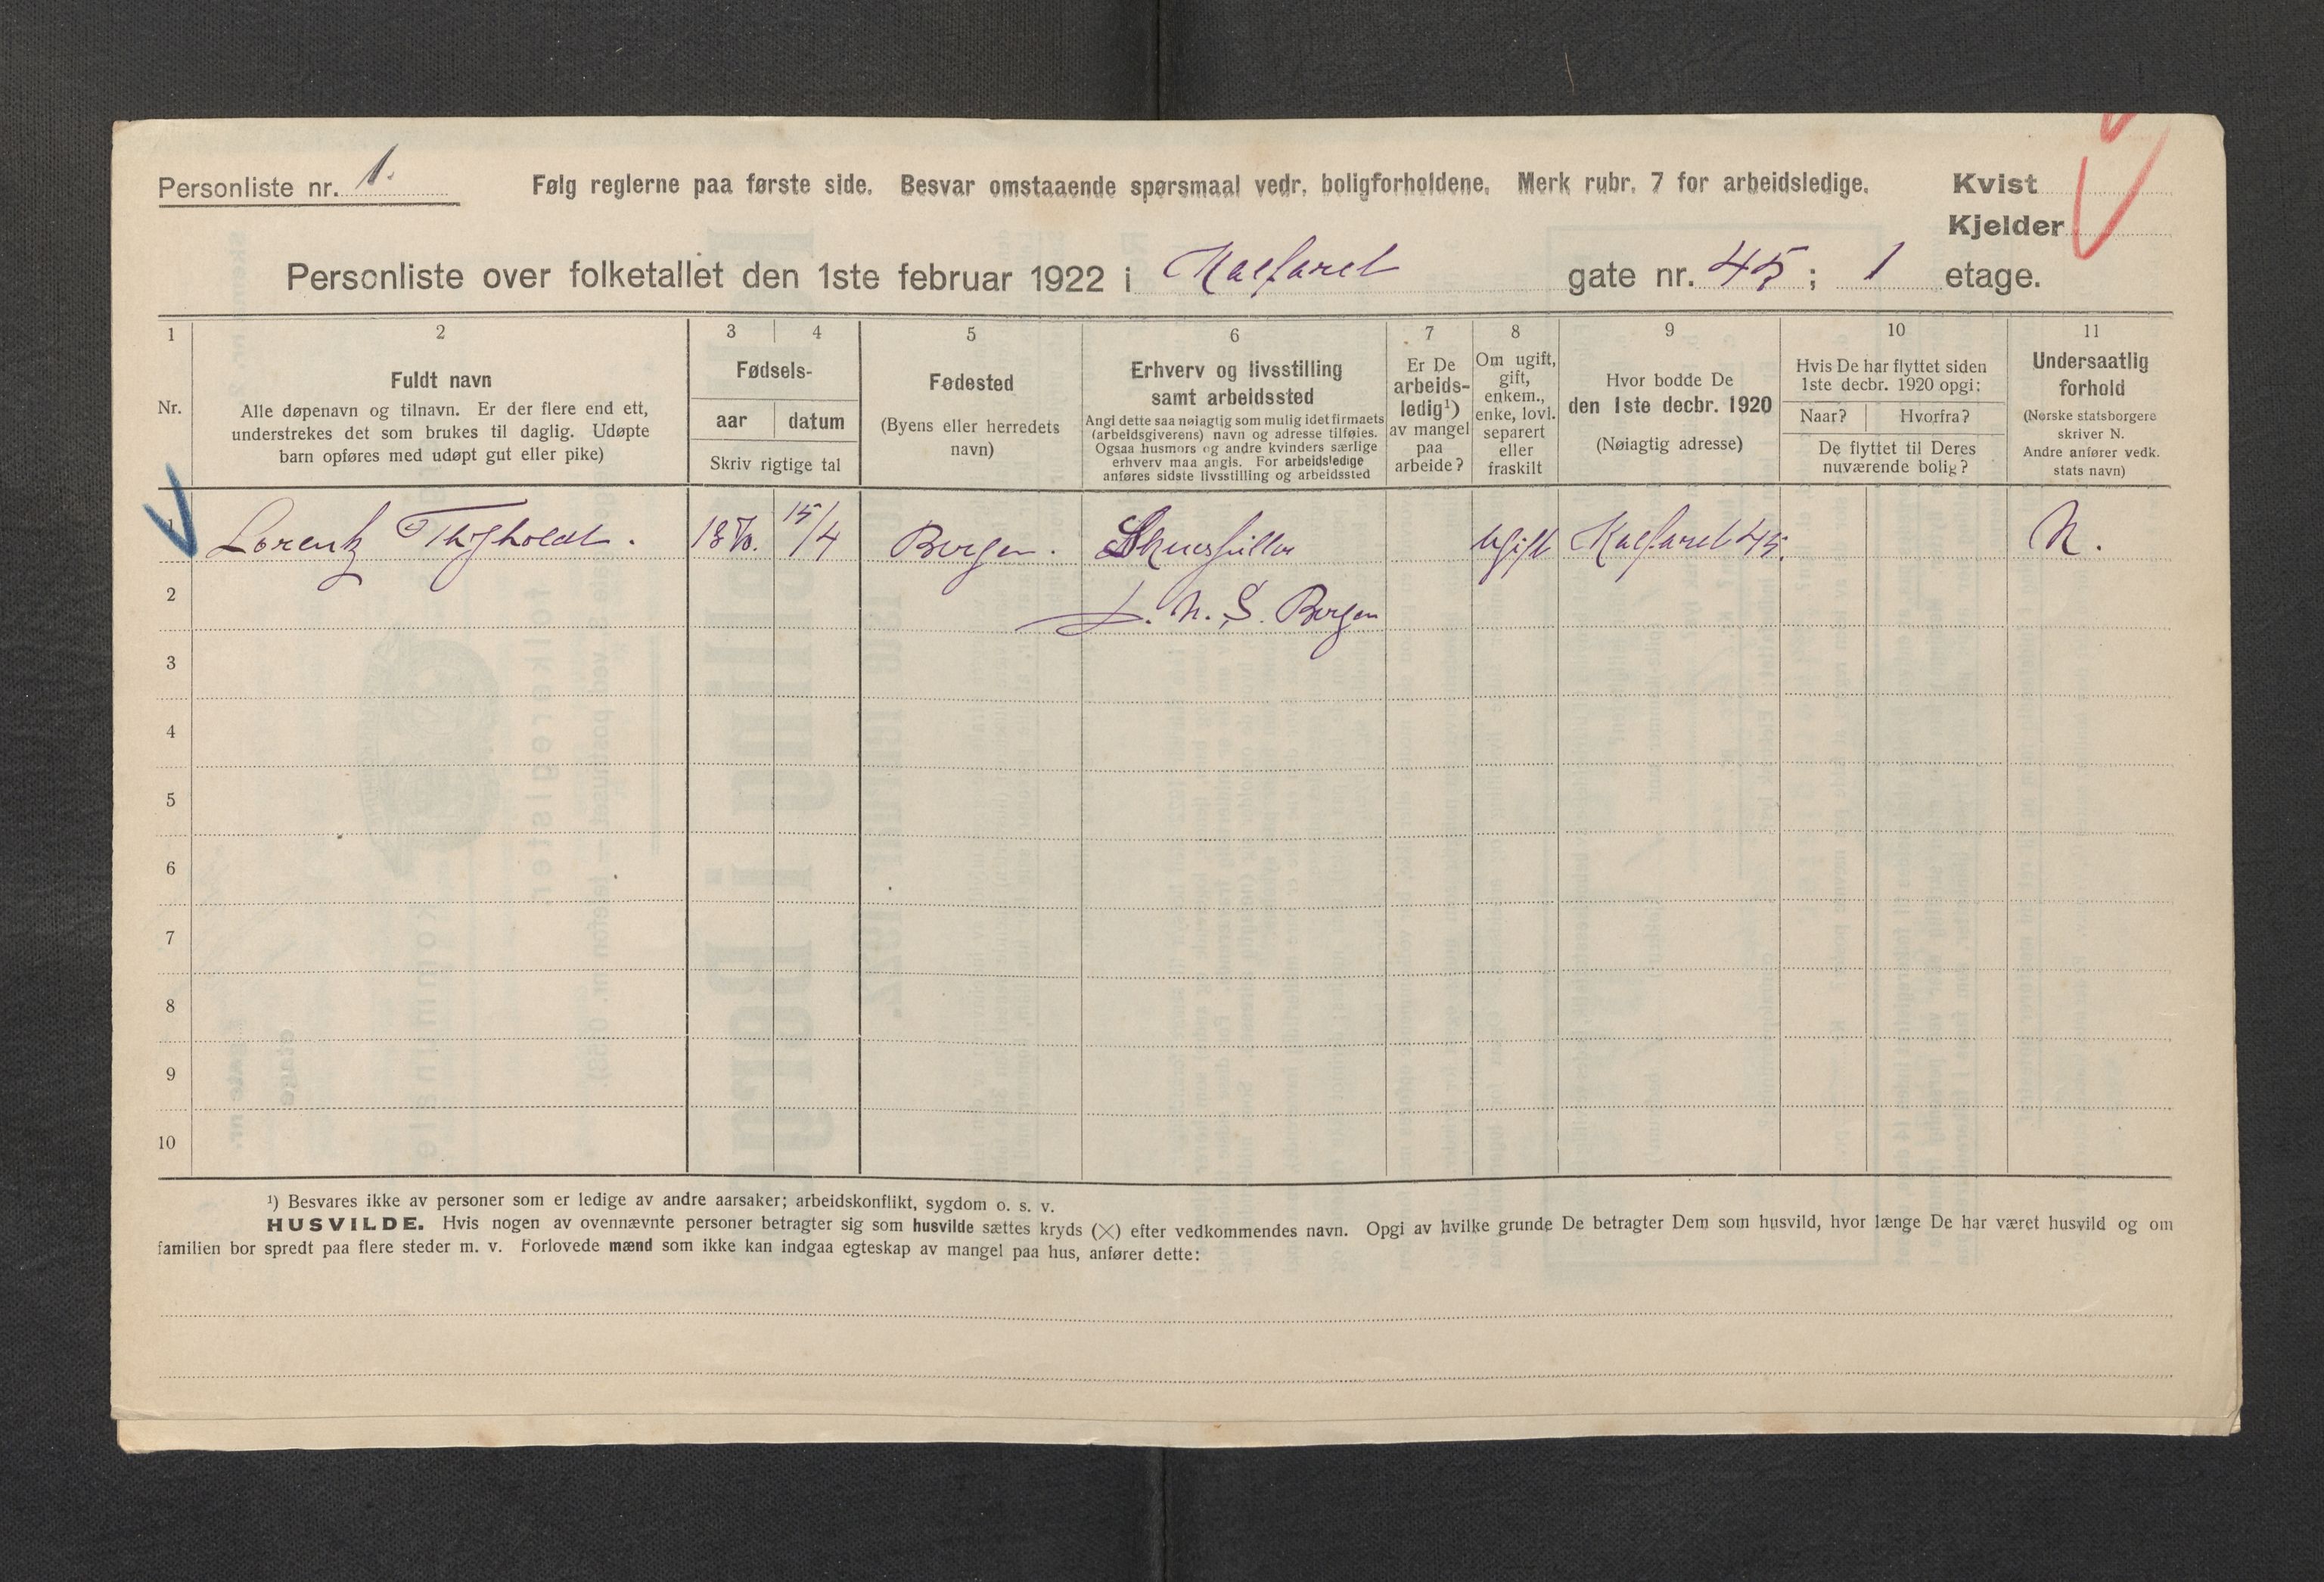 Personliste nr. 1.
Følg reglerne paa første side. Besvar omstaaende spørsmaal vedr. boligforholdene. Merk rubr. 7 for arbeidsledige.
Kvist
Kjelder
Personliste over folketallet den 1ste februar 1922 i Kalfaret gate nr. 45; 1 etage.
1 2 3 4 5 6 7 8 9 10 11
Nr.
Fuldt navn
Alle døpenavn og tilnavn. Er der flere end ett,
understrekes det som brukes til daglig. Udøpte
barn opføres med udøpt gut eller pike)
Fødsels-
aar datum
Skriv rigtige tal
Fødested
(Byens eller herredets
navn)
Erhverv og livsstilling
samt arbeidssted
Angi dette saa nøiagtig som mulig idet firmaets
(arbeidsgiverens) navn og adresse tilføies.
Ogsaa husmors og andre kvinders særlige
erhverv maa angis. For arbeidsledige
anføres sidste livsstilling og arbeidssted
Er De
arbeids-
ledig¹)
av mangel
paa
arbeide?
Om ugift,
gift,
enkem.,
enke, lovl.
separert
eller
fraskilt
Hvor bodde De
den 1ste decbr. 1920
(Nøiagtig adresse)
Hvis De har flyttet siden
1ste decbr. 1920 opgi:
Naar? Hvorfra?
De flyttet til Deres
nuværende bolig?
Undersaatlig
forhold
(Norske statsborgere
skriver N.
Andre anfører vedk.
stats navn)
1 Lorentz 15/4 Bergen. Skuespiller ugift Kalfaret 45. N.
2 D. N. S. Bergen
3
4
5
6
7
8
9
10
¹) Besvares ikke av personer som er ledige av andre aarsaker; arbeidskonflikt, sygdom o. s. v.
HUSVILDE. Hvis nogen av ovennævnte personer betragter sig som husvilde sættes kryds (×) efter vedkommendes navn. Opgi av hvilke grunde De betragter Dem som husvild, hvor længe De har været husvild og om
familien bor spredt paa flere steder m. v. Forlovede mænd som ikke kan indgaa egteskap av mangel paa hus, anfører dette: